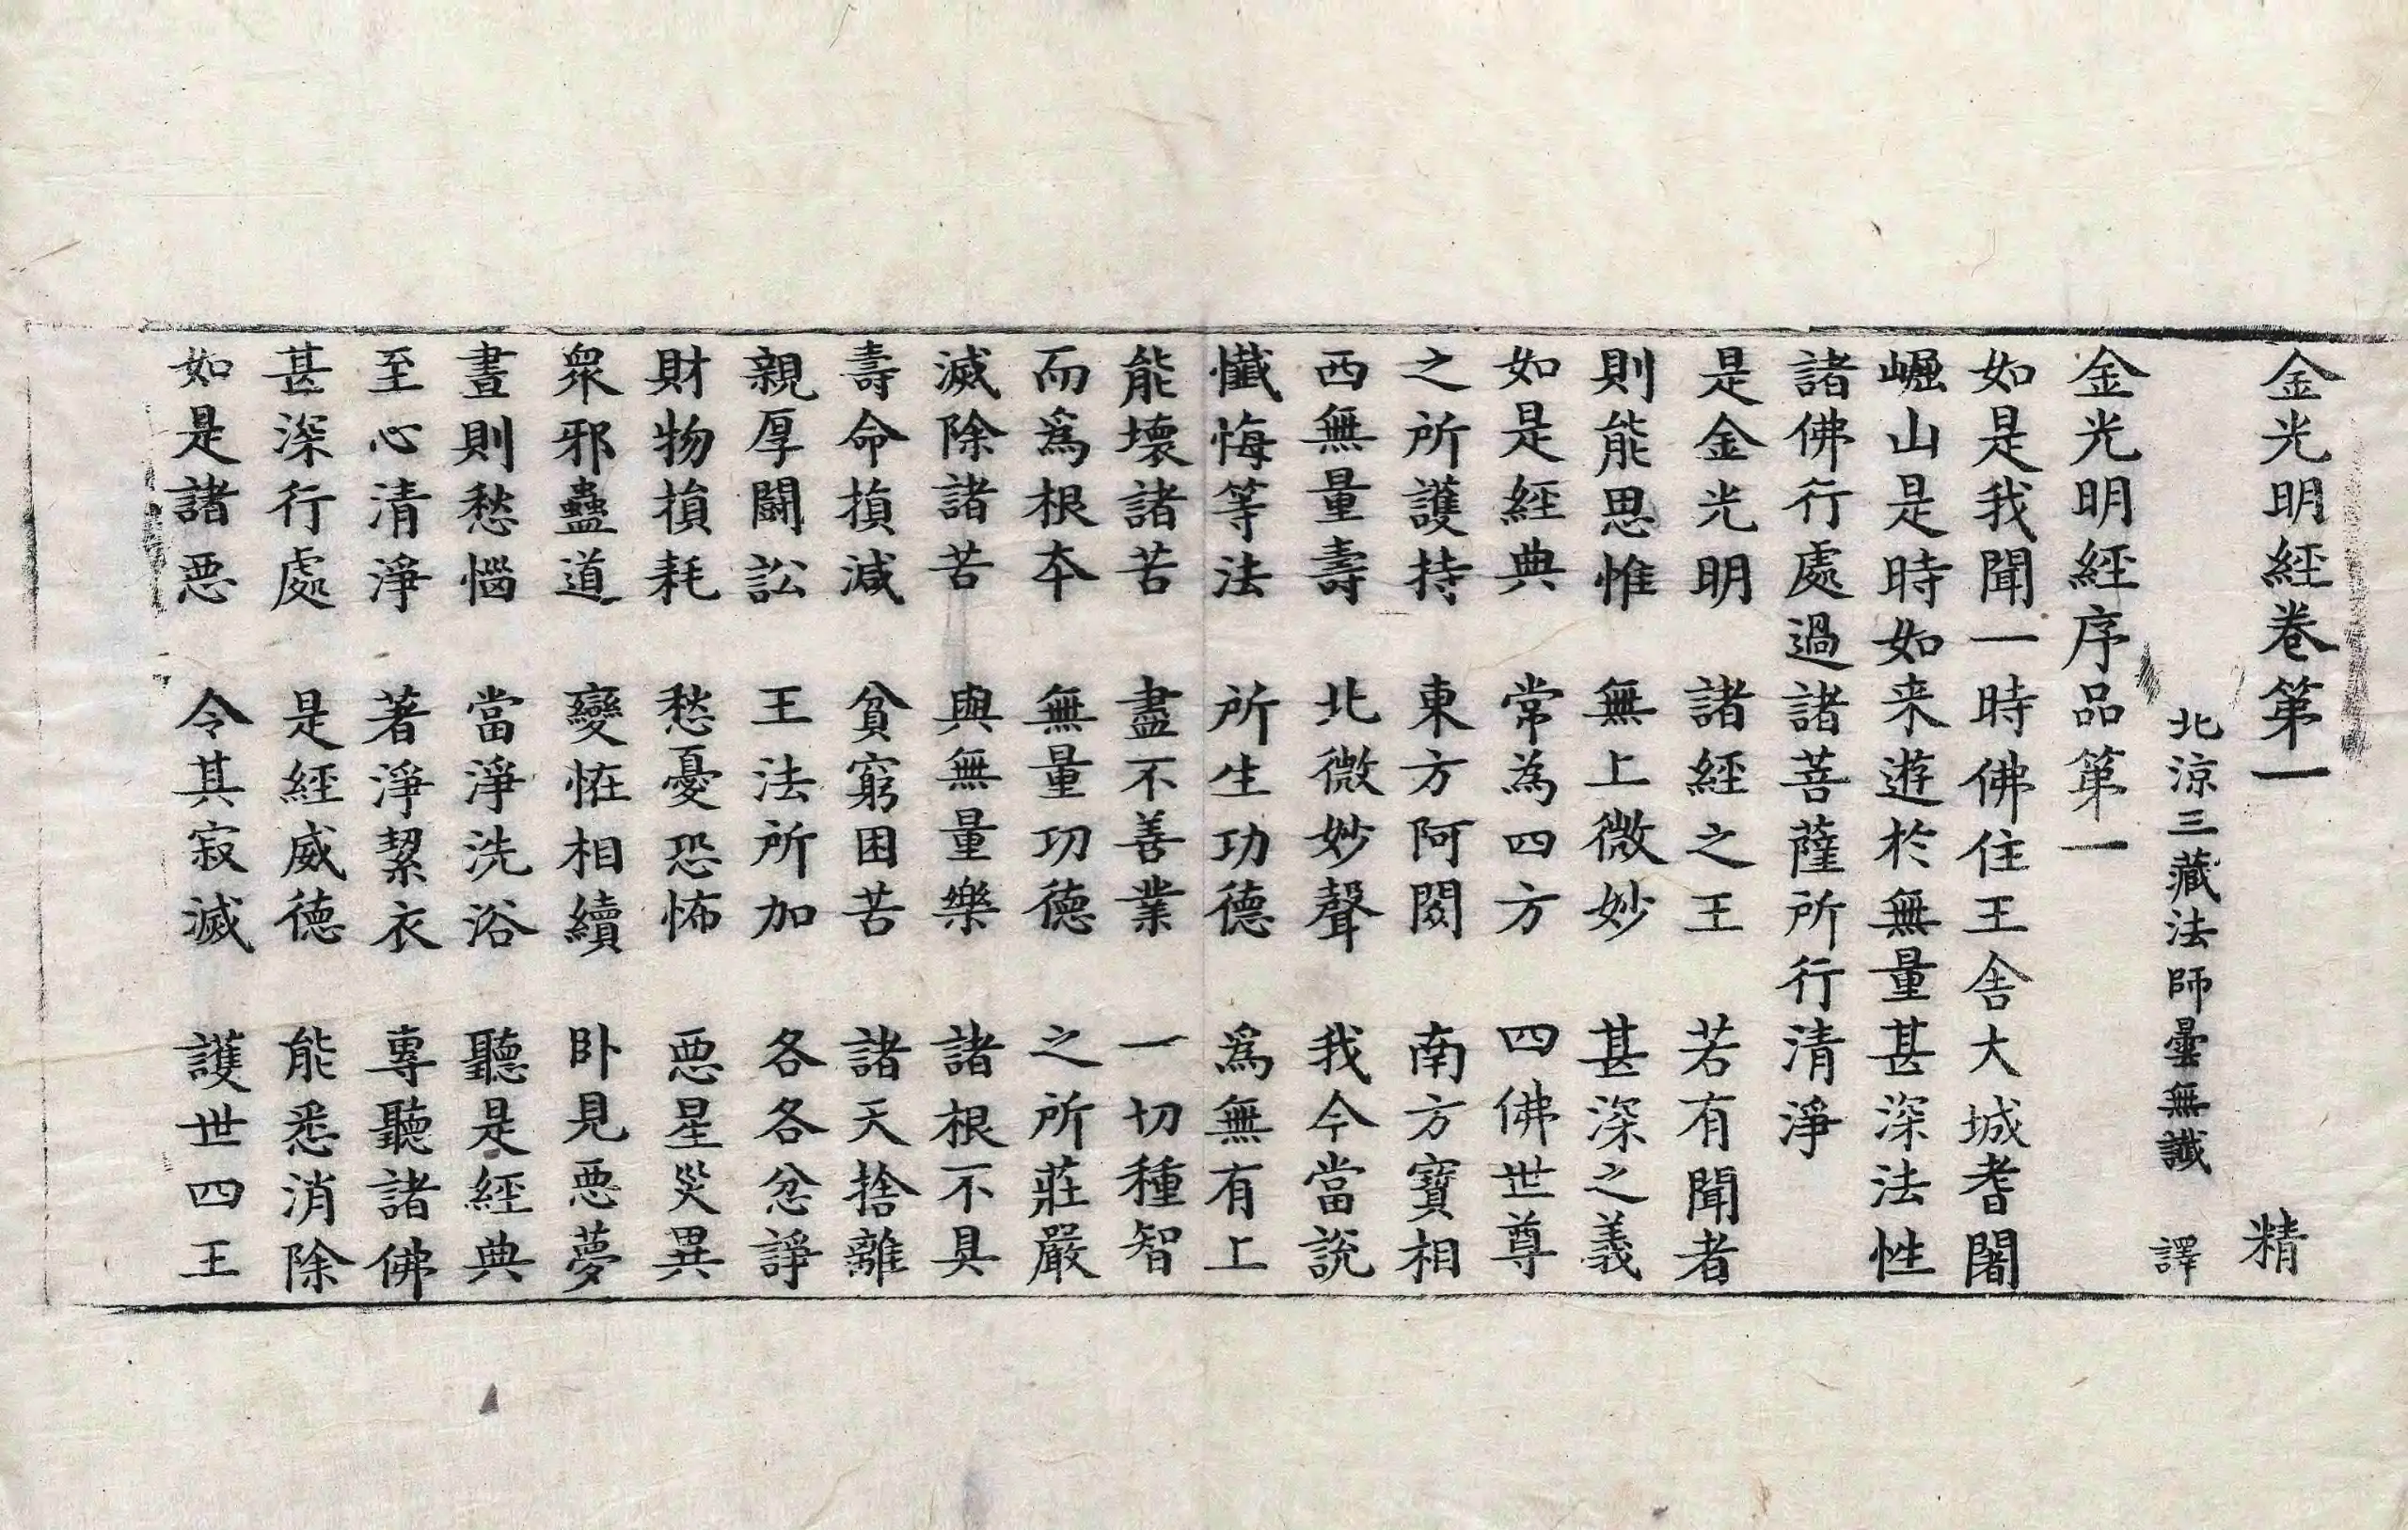 金光明經卷第一 精
北涼三藏法師曇無讖 譯
金光明經序品第一
如是我聞一時佛住王舍大城耆闍
崛山是時如来遊於無量甚深法性
諸佛行處過諸菩薩所行清淨
是金光明 諸經之王 若有聞者
則能思惟 無上微妙 甚深之義
如是經典 常為四方 四佛世尊
之所護持 東方阿閦 南方寶相
西無量壽 北微妙聲 我今當說
懺悔等法 所生功德 爲無有上
能壞諸苦 盡不善業 一切種智
而爲根本 無量功德 之所莊嚴
滅除諸苦 與無量樂 諸根不具
壽命損減 貧窮困苦 諸天捨離
親厚鬪訟 王法所加 各各忿諍
財物損耗 愁憂恐怖 惡星災異
衆邪蠱道 變恠相續 卧見惡夢
晝則愁惱 當淨洗浴 聽是經典
至心清淨 著淨絜衣 專聽諸佛
甚深行處 是經威德 能悉消除
如是諸惡 令其寂滅 護世四王